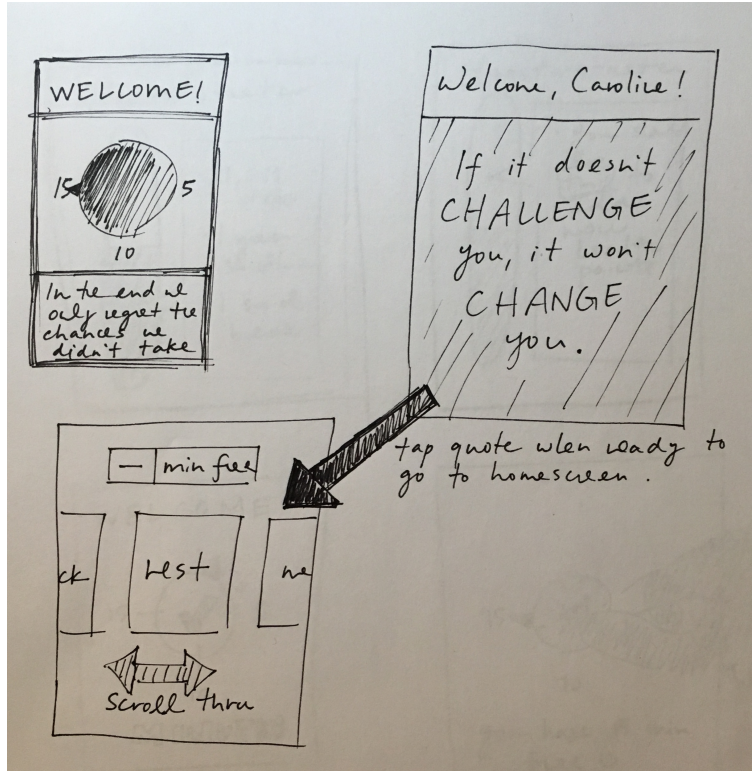 WELCOME!
15
5
10
In the end we
only regret the
chances we
didn't take
Welcome, Caroline!
If it doesn't
CHALLENGE
you, it won't
CHANGE
you.
tap quote when ready to
go to homescreen.
— min free
ck
rest
me
scroll thru